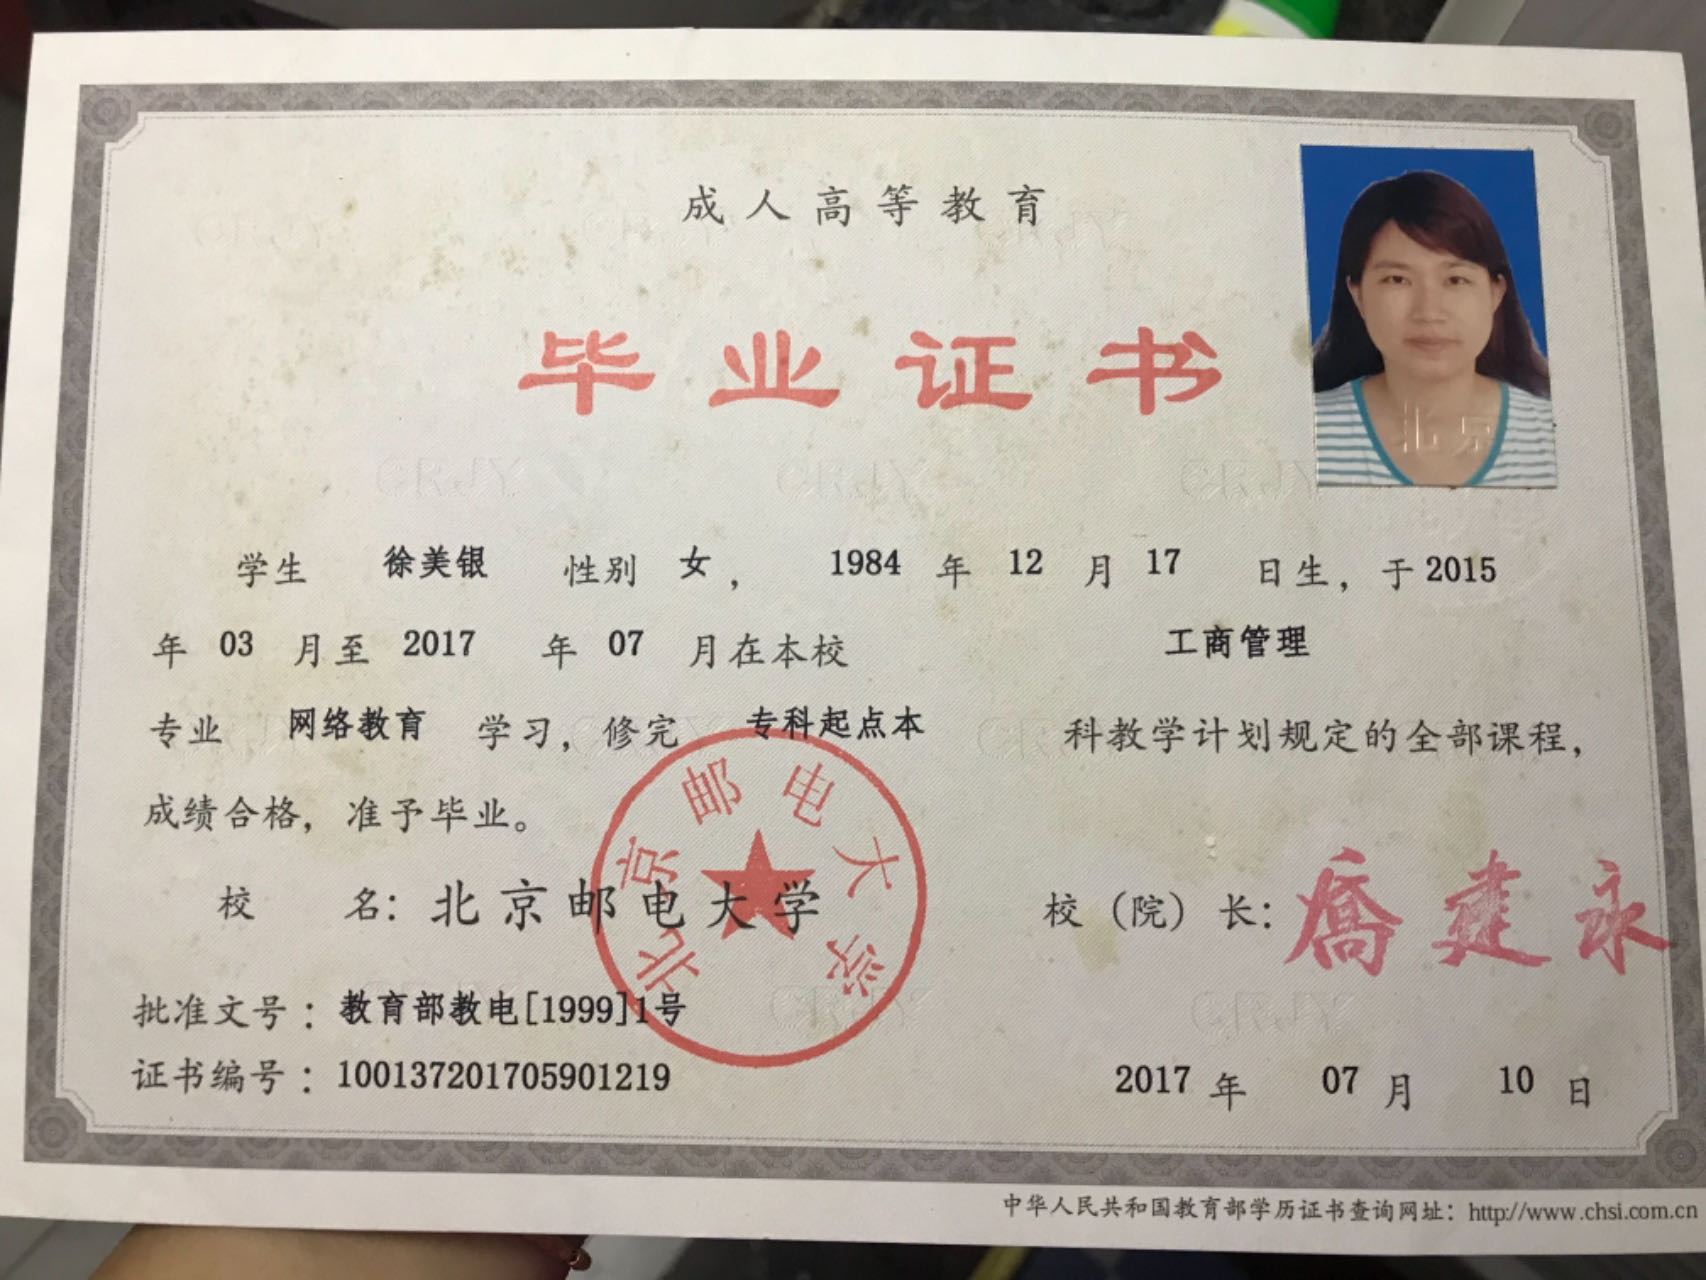 成人高等教育
毕业证书
学生 徐美银 性别 女， 1984 年 12 月 17 日生，于 2015
年 03 月至 2017 年 07 月在本校 工商管理
专业 网络教育 学习，修完 专科起点本 科教学计划规定的全部课程，
成绩合格，准予毕业。
校 名：北京邮电大学 校（院）长：喬建永
北京邮电大学
批准文号：教育部教电[1999]1号
证书编号：100137201705901219 2017 年 07 月 10 日
中华人民共和国教育部学历证书查询网址：http://www.chsi.com.cn
北京
CRJY CRJY CRJY